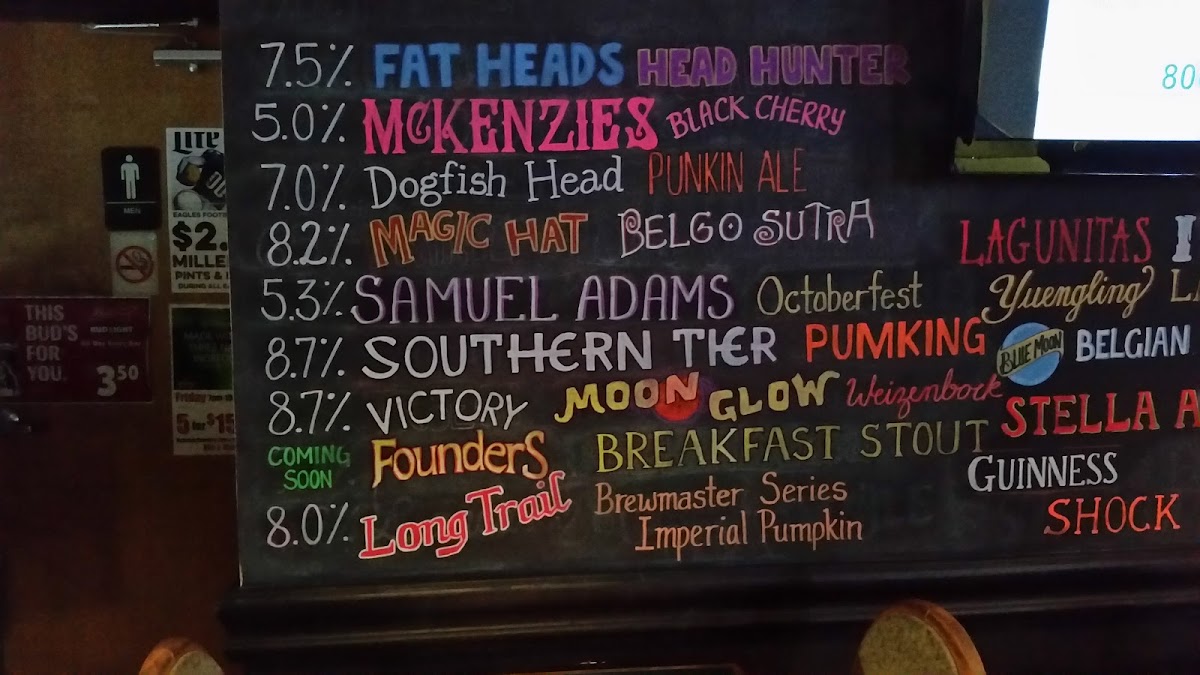 7.5% FAT HEADS HEAD HUNTER
5.0% McKENZIES BLACK CHERRY
7.0% Dogfish Head PUNKIN ALE
8.2% MAGIC HAT BELGO SUTRA
5.3% SAMUEL ADAMS Octoberfest
8.7% SOUTHERN TIER PUMKING
8.7% VICTORY MOON GLOW Weizenbock
COMING SOON Founders BREAKFAST STOUT
8.0% Long Trail Brewmaster Series
Imperial Pumpkin
LAGUNITAS
Yuengling
BLUE MOON BELGIAN
STELLA A
GUINNESS
SHOCK
80
MEN
LITE
EAGLES FOOTB
$2.
MILLE
PINTS &
THIS
BUD'S
FOR
YOU.
BUD LIGHT
3 50
Friday
5 for $15